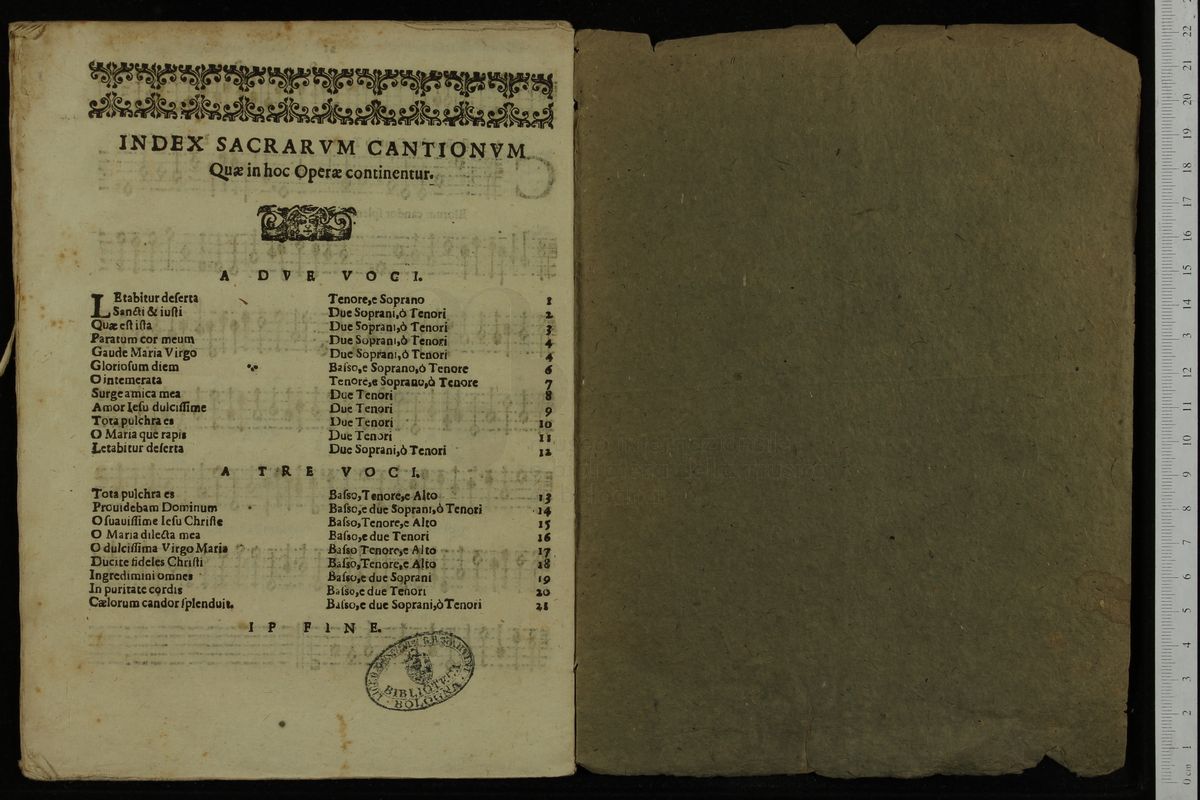 INDEX SACRARVM CANTIONVM
Quæ in hoc Operæ continentur.
A DVE VOCI.
LEtabitur deserta Tenore,e Soprano 1
Sancti & iusti Due Soprani,ò Tenori 2
Quæ est ista Due Soprani,ò Tenori 3
Paratum cor meum Due Soprani,ò Tenori 4
Gaude Maria Virgo Due Soprani,ò Tenori 4
Gloriosum diem Basso,e Soprano,ò Tenore 6
O intemerata Tenore,e Soprano,ò Tenore 7
Surge amica mea Due Tenori 8
Amor Iesu dulcissime Due Tenori 9
Tota pulchra es Due Tenori 10
O Maria que rapis Due Tenori 11
Letabitur deserta Due Soprani,ò Tenori 12
A TRE VOCI.
Tota pulchra es Basso,Tenore,e Alto 13
Prouidebam Dominum Basso,e due Soprani,ò Tenori 14
O suauissime Iesu Christe Basso,Tenore,e Alto 15
O Maria dilecta mea Basso,e due Tenori 16
O dulcissima Virgo Maria Basso Tenore,e Alto 17
Ducite fideles Christi Basso,Tenore,e Alto 18
Ingredimini omnes Basso,e due Soprani 19
In puritate cordis Basso,e due Tenori 20
Cælorum candor splenduit. Basso,e due Soprani,ò Tenori 21
IP FINE.
BIBLIOTECA
BOLOGNA